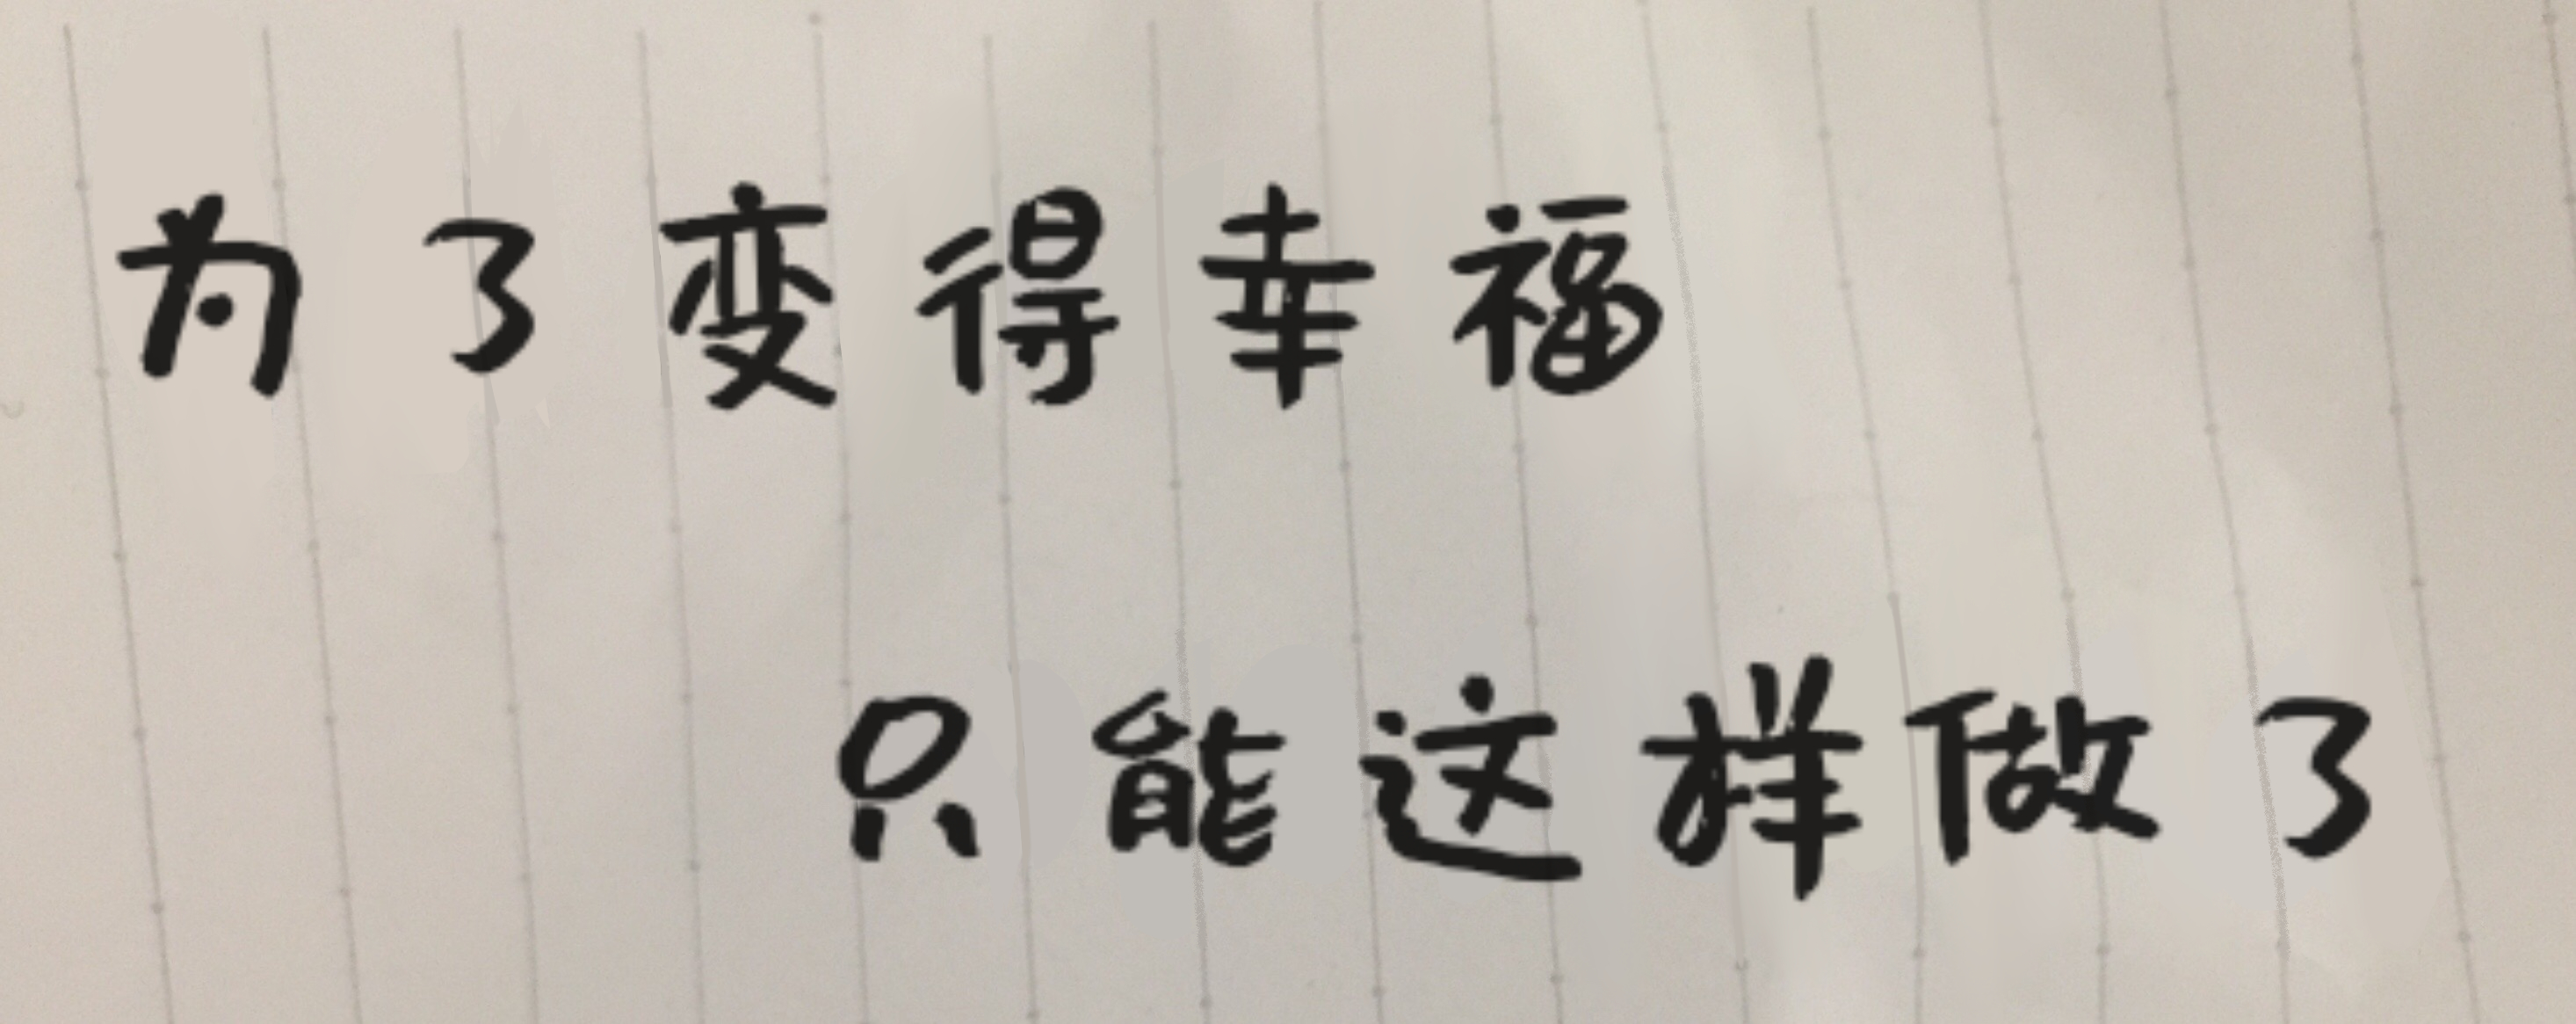 为了变得幸福
只能这样做了